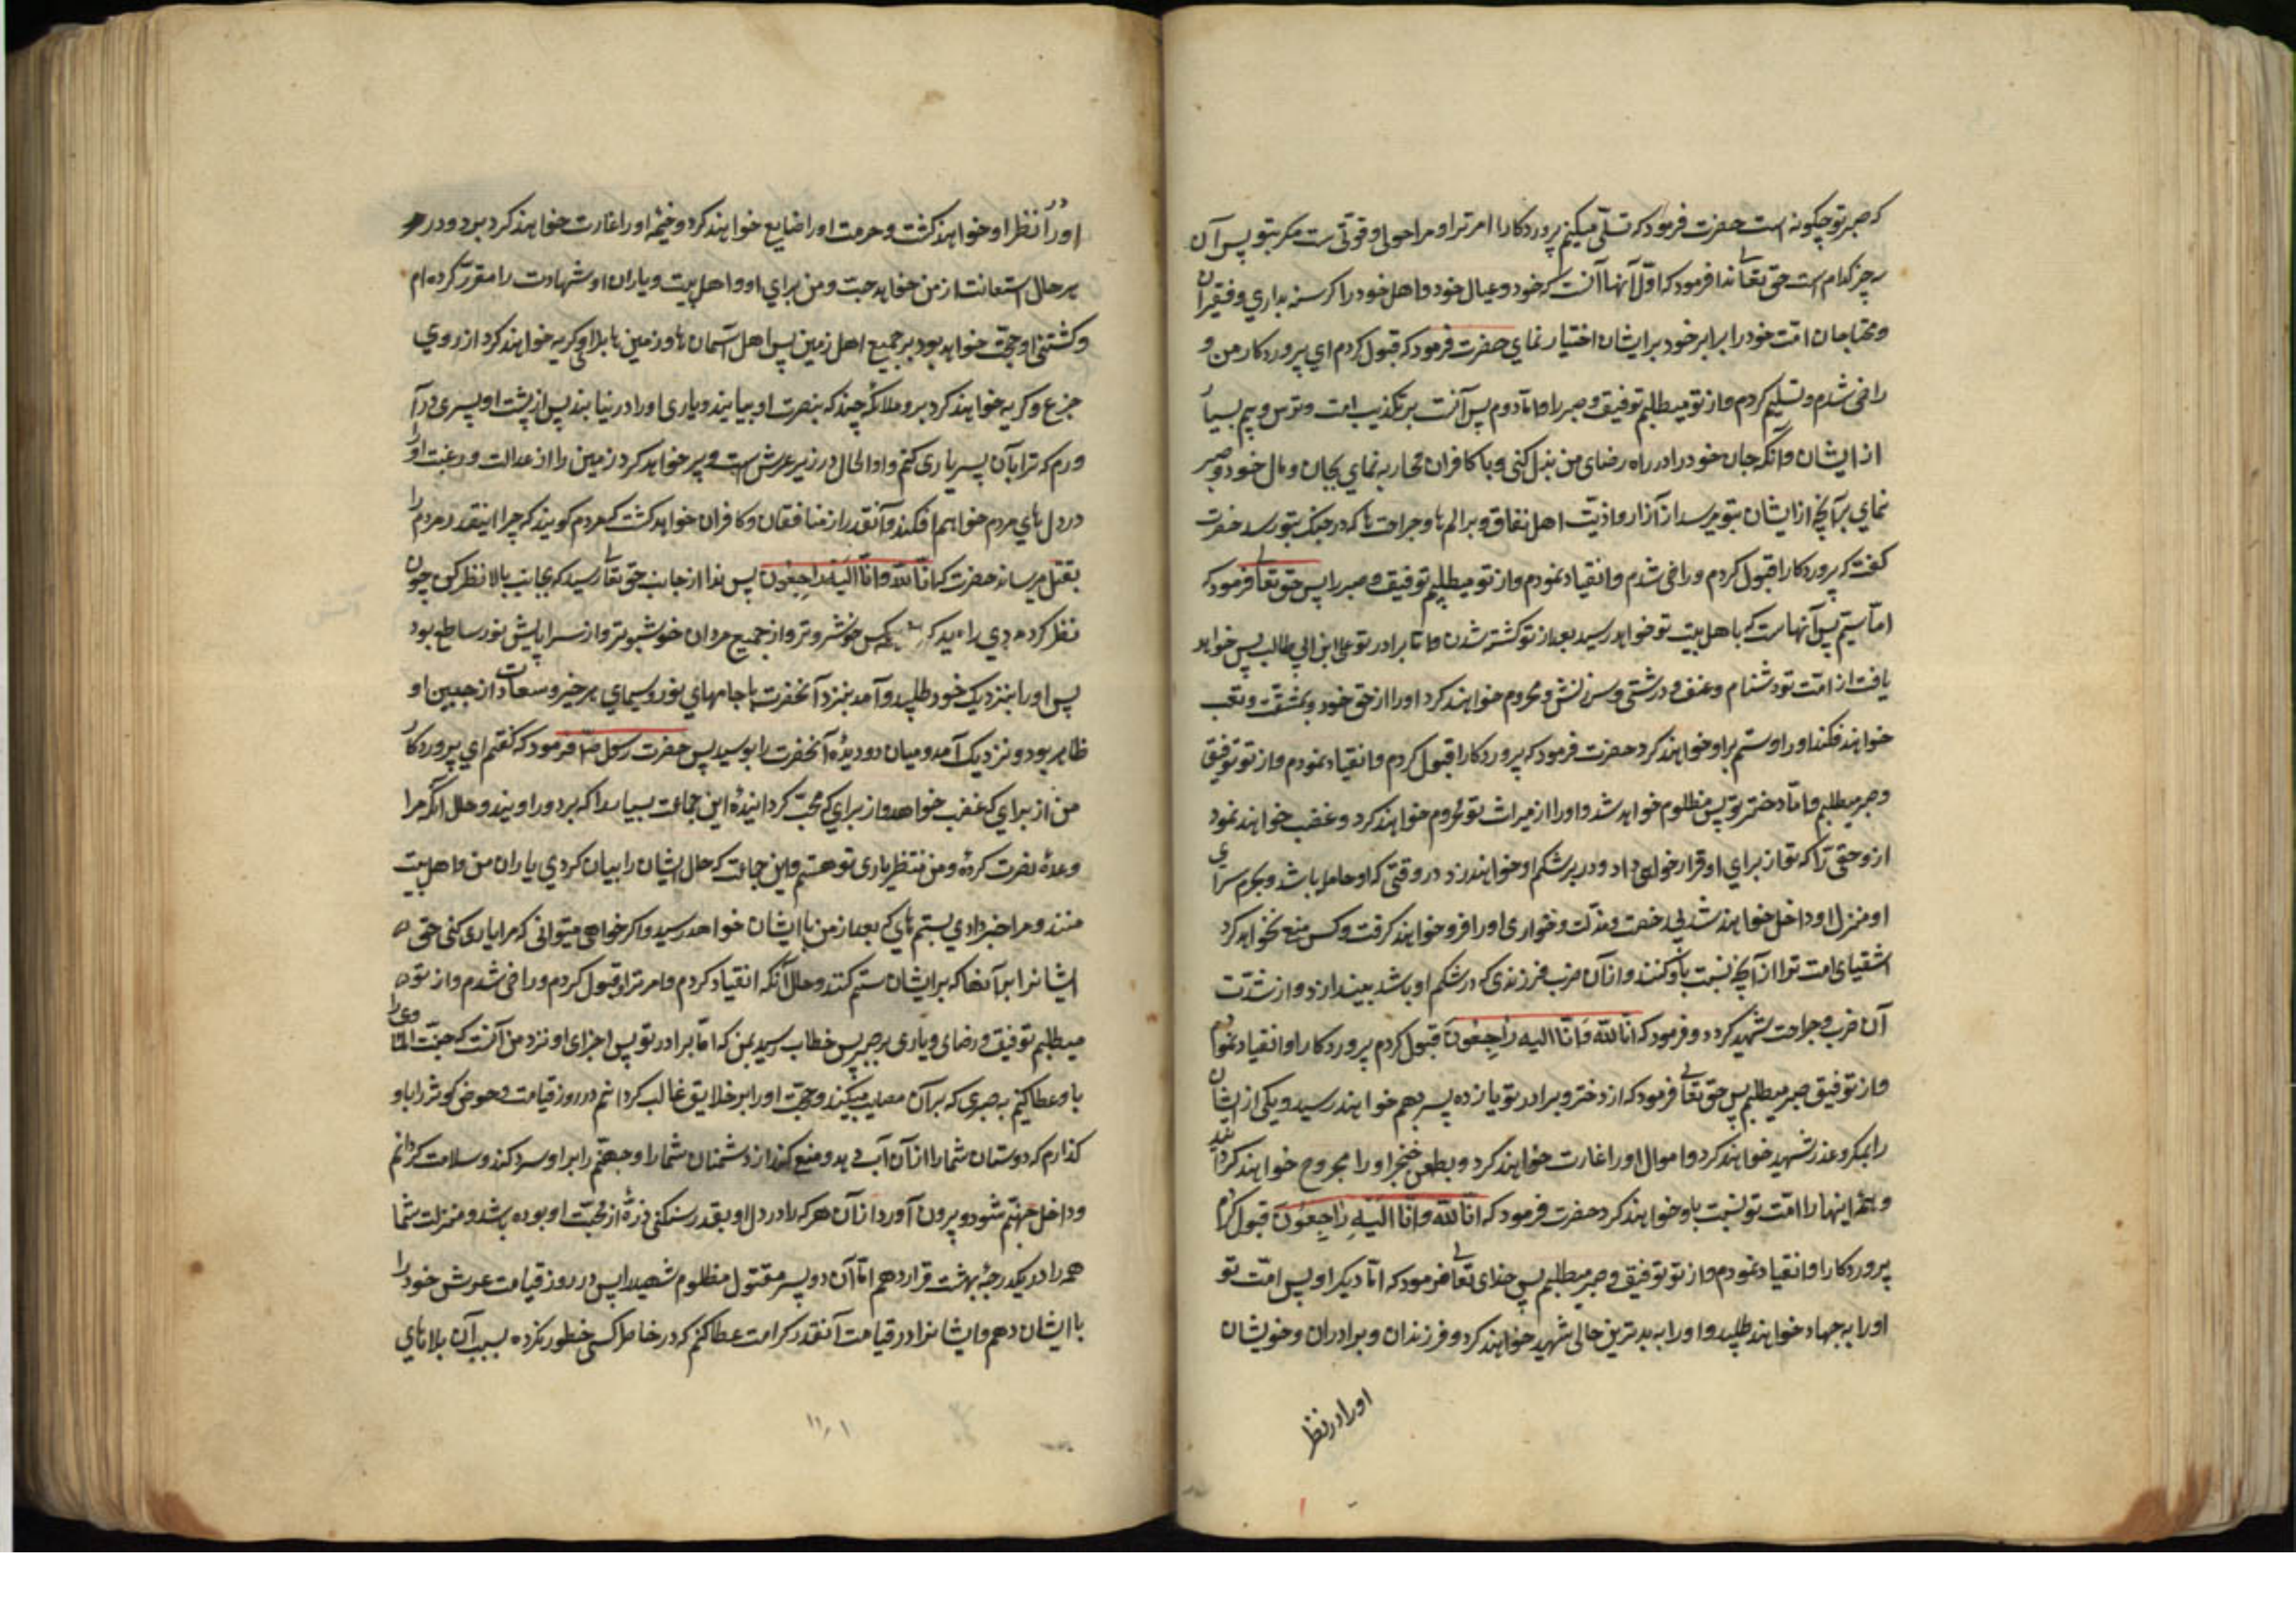 که صبر تو چگونه است حضرت فرمود که تسلّی میکنم پروردکارا امر ترا و مرا حولی و قوتی نیست مکر بتو پس آن
سه چیز کدام است حق تعالی ندا فرمود که اوّل آنها آنست که خود و عیال خود و اهل خود را کرسنه بداری و فقیران
و محتاجان امّت خود را برابر خود بر ایشان اختیار نمای حضرت فرمود که قبول کردم ای پروردکار من و
راضی شدم و تسلیم کردم و از تو میطلبم توفیق و صبر را و امّا دوم پس آنست بر تکذیب امت و ترس و بیم بسیار
از ایشان و آنکه جان خود را در راه رضای من بذل کنی و با کافران محاربه نمای بجان و مال خود و صبر
نمای بر آنچه از ایشان بتو میرسد از آزار و اذیّت اهل نفاق و بر الم ها و جراحت ها که در جنک بتو رسد حضرت
کفت که پروردکارا قبول کردم و راضی شدم و انقیاد نمودم و از تو میطلبم توفیق و صبر را پس حق تعالی فرمود که
امّا سیّم پس آنهاست که باهل بیت تو خواهد رسید بعد از تو کشته شدن و امّا برادر تو علی ابن ابی طالب پس خواهد
یافت از امّت تو دشنام و عنف و درشتی و سرزنش و محروم خواهند کرد او را از حق خود و بمشقّت و تعب
خواهند فکند او را و ستم بر او خواهند کرد حضرت فرمود که پروردکارا قبول کردم و انقیاد نمودم و از تو توفیق
و صبر میطلبم و امّا دختر تو پس مظلوم خواهد شد و او را از میراث تو محروم خواهند کرد و غضب خواهند نمود
از و حقی را که تو از برای او قرار خواهی داد و در بر شکم او خواهند زد در وقتی که او حامل باشد و بحرم سرای
او و منزل او داخل خواهند شد بی رخصت و مذلت و خواری او را فرو خواهند کرفت و کس منع نخواهد کرد
اشقیای امت تو را از آنچه نسبت باو کنند و از آن ضرب فرزندی که در شکم او باشد بیندازد و از شدّت
آن ضرب و جراحت شهید کردد و فرمود که انّا للّه و انّا الیه راجعون قبول کردم پروردکارا و انقیاد نمودم
و از تو توفیق صبر میطلبم پس حق تعالی فرمود که از دختر و برادر تو یازده پسر بهم خواهند رسید و یکی از ایشان
را بمکر و عذر شهید خواهند کرد و اموال او را غارت خواهند کرد و بطعن خنجر او را مجروح خواهند کردانید
و همه اینها را امّت تو نسبت باو خواهند کرد حضرت فرمود که انّا للّه و انّا الیه راجعون قبول کردم
پروردکارا و انقیاد نمودم و از تو توفیق و صبر میطلبم پس خدای تعالی فرمود که امّا دیکر او پس امّت تو
او را به جهاد خواهند طلبید و او را به بدترین حالی شهید خواهند کرد و فرزندان و برادران و خویشان
او را در نظر
او را در نظر او خواهند کشت و حرمت او را ضایع خواهند کرد و خیمه او را غارت خواهند کرد برد و در
هر حال استعانت از من خواهد جست و من برای او و اهل بیت و یاران او شهادت را مقرّر کرده ام
و کشتن او حجّت خواهد بود بر جمیع اهل زمین پس اهل آسمان ها و زمین ها بر او کریه خواهند کرد از روی
جزع و کریه خواهند کرد برو ملائکه چند که بنصرت او بیایند و یاری او را در نیابند پس از پشت او پسری در آ
ورم که ترا بآن پسر یاری کنم و او الحال در زیر عرش است و پر خواهد کرد زمین را از عدالت و رعبت او را
در دل های مردم خواهم افکند و آنقدر از منافقان و کافران خواهد کشت که مردم کویند که چرا اینقدر مردم را
بقتل میرساند حضرت کفت انّا للّه و انّا الیه راجعون پس ندا از جانب حق تعالی رسید که بجانب بالا نظر کن چون
نظر کرد مردی را دید که از همه کس خوشروتر و از جمیع مردان خوشبوتر و از سراپایش نور ساطع بود
پس او را بنزدیک خود طلبید و آمد بنزد آنحضرت با جامهای نور و سیمای هر خیر و سعادت از جبین او
ظاهر بود و نزدیک آمد و میان دو دیده آنحضرت را بوسید پس حضرت رسول ص فرمود که کفتم ای پروردکار
من از برای که غضب خواهد و از برای که محبّ کردانیدهٔ این جماعت بسیار را که بر دور اویند و حال آنکه مرا
وعدهٔ نصرت کردهٔ و من منتظر یاری تو هستم و این جماعت که حال ایشان را بیان کردی یاران من و اهل بیت
منند و مرا خبر دادی بستم های که بعد از من با ایشان خواهد رسید و اکر خواهی میتوانی که مرا یاری کنی حتی
ایشانرا بر آنها که بر ایشان ستم کنند و حال آنکه انقیاد کردم و امر ترا قبول کردم و راضی شدم و از تو
میطلبم توفیق و رضای و یاری بر صبر پس خطاب رسید بمن که امّا برادر تو پس اجزای او نزد من آنست که جنّت الماوی را
باو عطا کنم به صبری که بر آن مصایب میکند و حجّت او را بر خلایق غالب کردانم در روز قیامت و حوض کوثر را باو
کذارم که دوستان شما را از آن آب دهد و منع کند از دشمنان شما را و جهنّم را بر او سرد کند و سلامت کردانم
و داخل جهنّم شود و بیرون آورد از آن هر که را در دل او بقدر سنکینی ذرهٔ از محبّت او بوده باشد و منزلت شما
همه را در یکدرجهٔ بهشت قرار دهم امّا آن دو پسر مقتول مظلوم شهید را پس در روز قیامت عرش خود را
با ایشان دهم و ایشانرا در قیامت آنقدر کرامت عطا کنم که در خاطر کسی خطور نکرده بسبب آن بلاهای